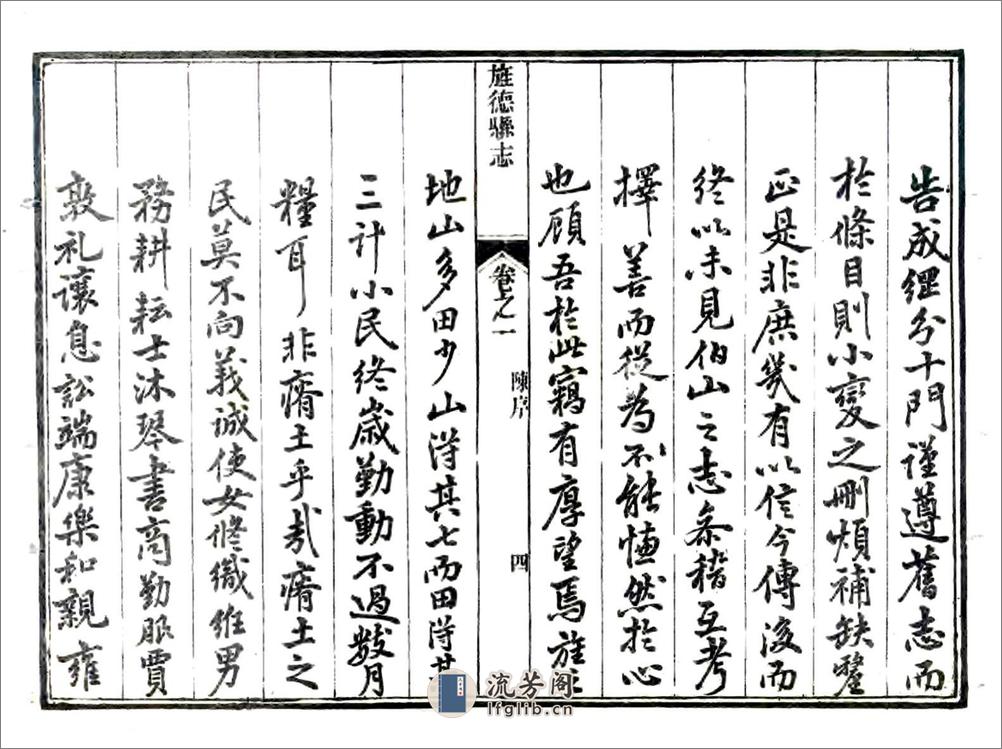 告成綱分十門謹遵舊志而
於條目則小變之刪煩補缺釐
正是非庶幾有以信今傳後而
終以未見伯山之志叅稽互考
擇善而從為不能慊然於心
也顧吾於此竊有厚望焉旌
旌德縣志
卷之一
陳序
四
地山多田少山得其七而田得其
三計小民終歲勤動不過數月
糧耳非瘠土乎哉瘠土之
民莫不向義誠使女修織維男
務耕耘士沐琴書商勤服賈
敦礼讓息訟端康樂和親雍
流芳阁
lfglib.cn